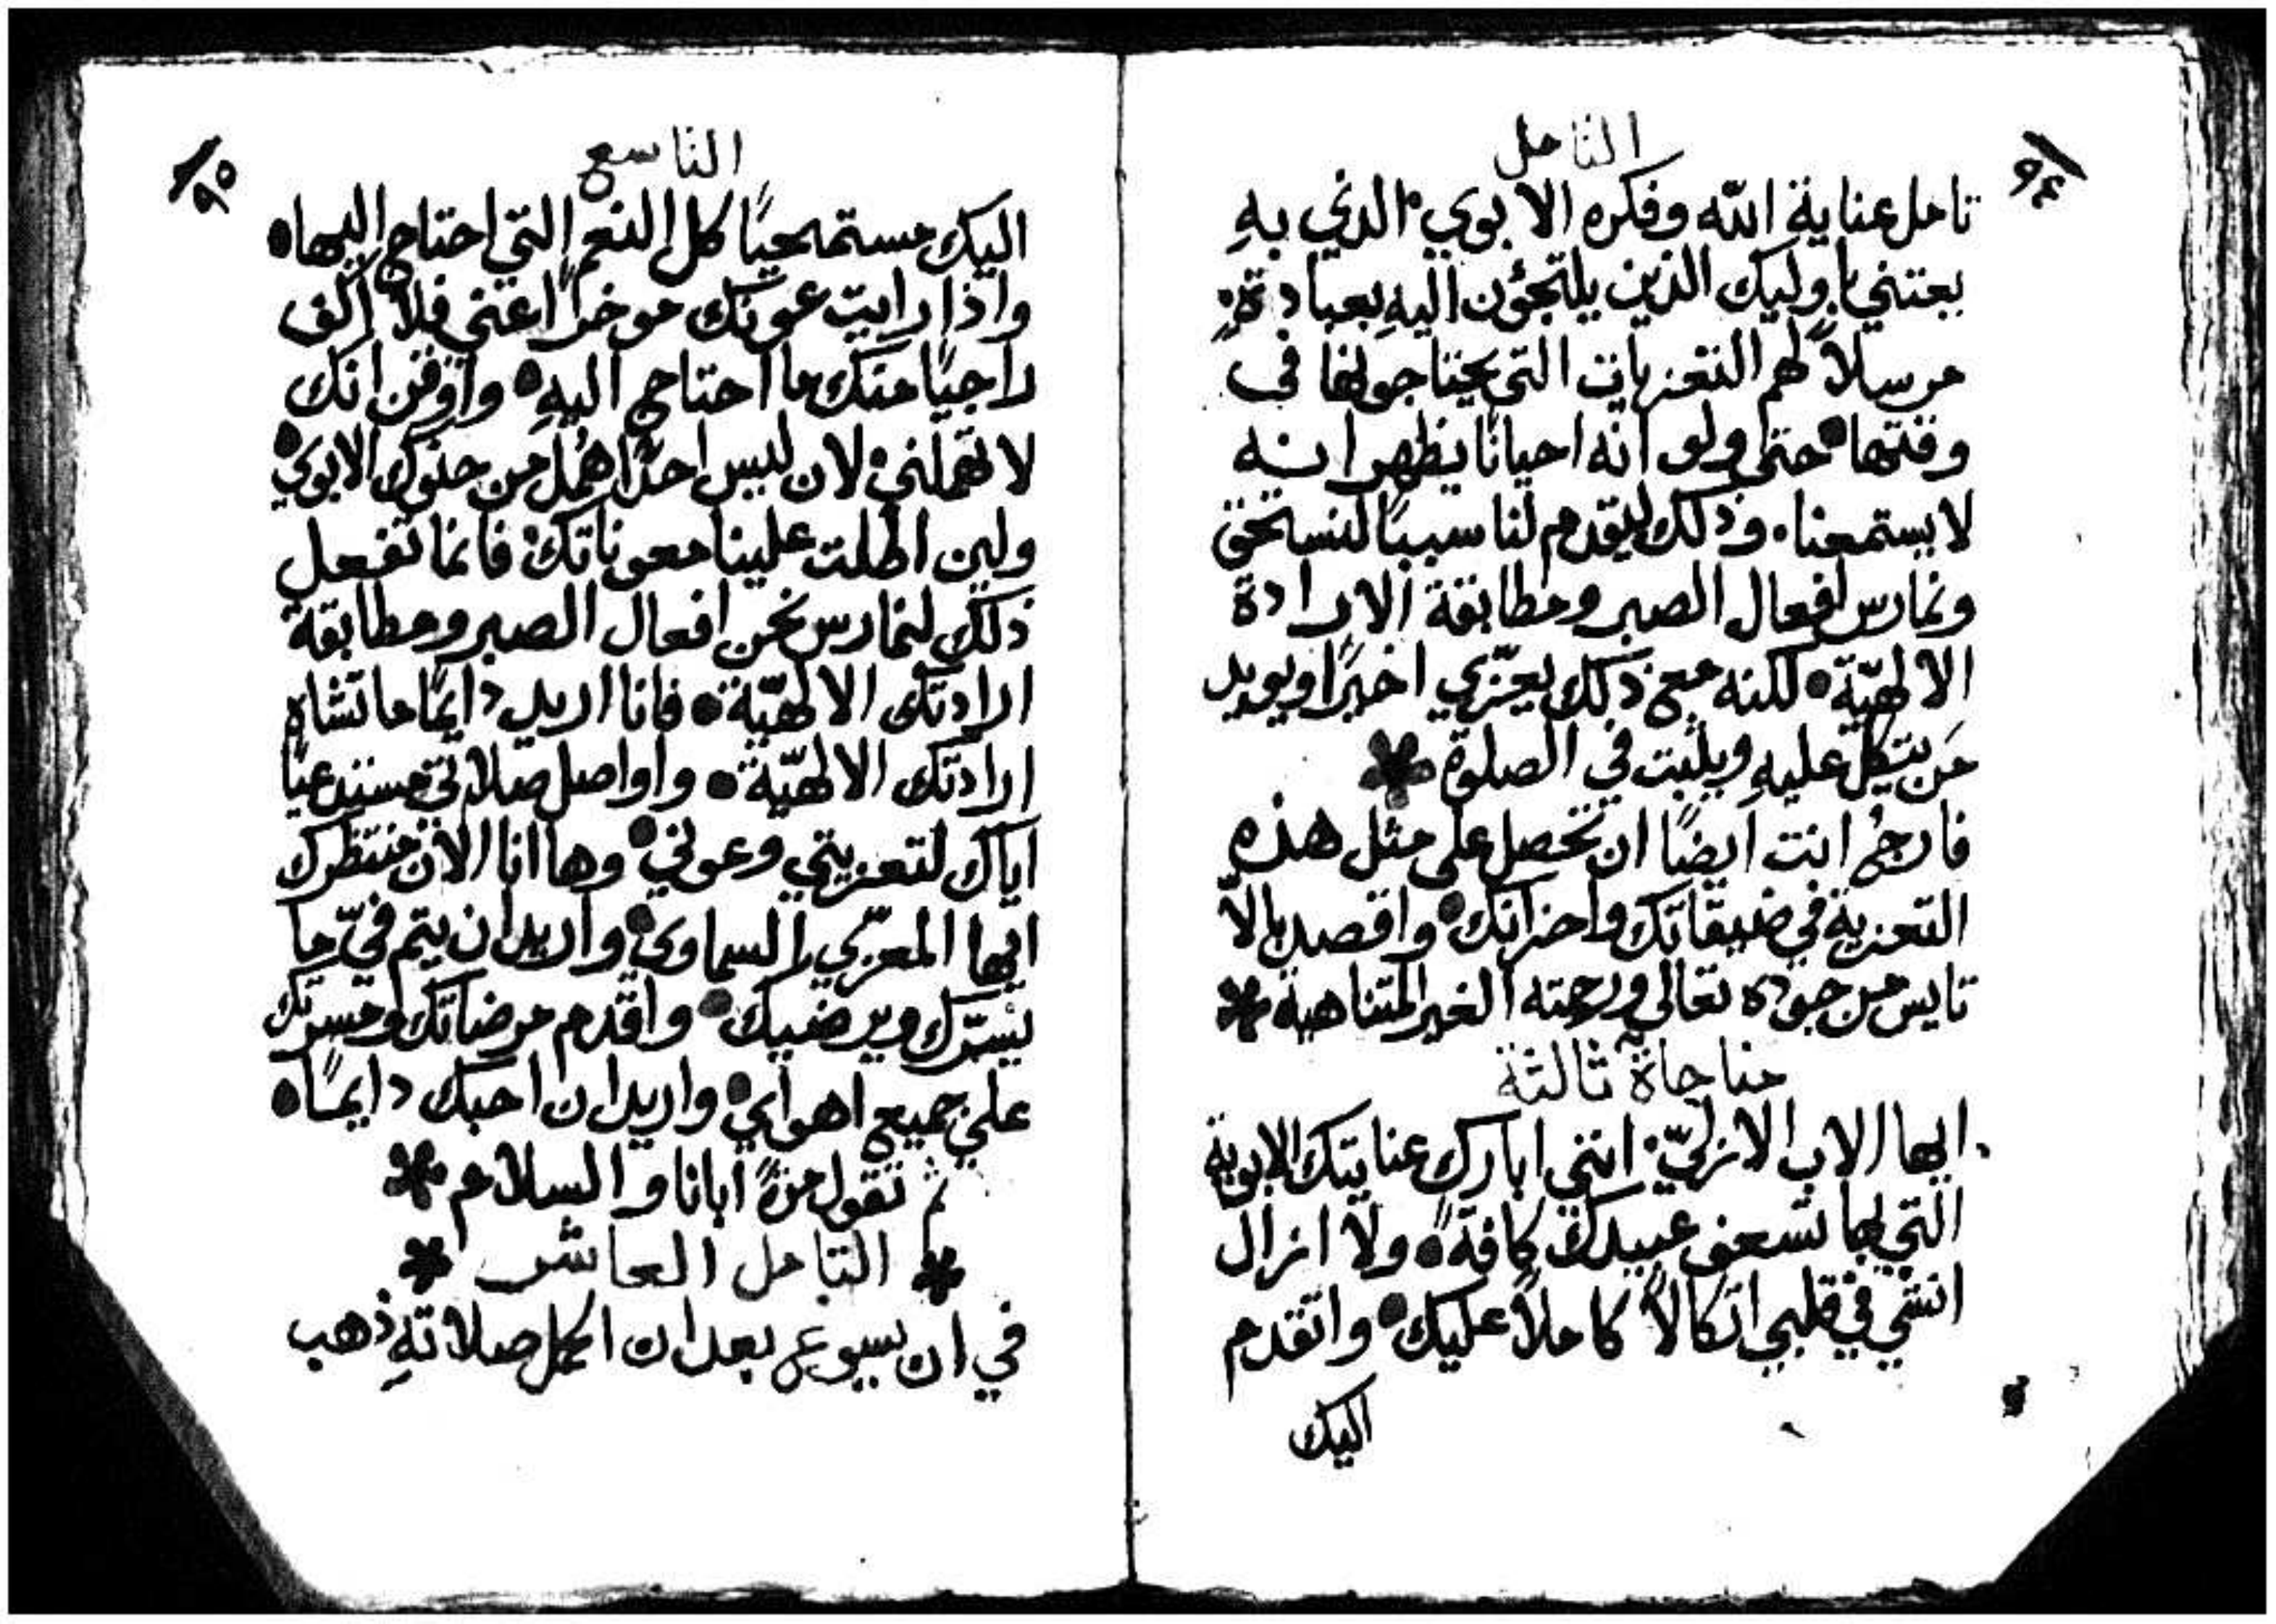 التامل
٩٤
تامل عناية الله وفكره الابوي الذي بهِ
يعتني باوليك الذين يلتجؤن اليهِ بعبادة
مرسلاً لهم التعزيات التي يحتاجونها في
وقتها حتى ولو انه احيانًا يظهر انه
لا يستمعنا وذلك ليقدم لنا سببًا لنستحق
ونمارس افعال الصبر ومطابقة الارادة
الالهيّة لكنه مع ذلك يعزّي اخيرًا ويويد
مَن يتكل عليهِ ويلبث في الصلوة
فارجُ انت ايضًا ان تحصل على مثل هذه
التعزية في ضيقاتك واحزانك واقصد بالاّ
تايس من جوده تعالى ورحمته الغير المتناهية
مناجاة ثالثة
ايها الاب الازليّ انني ابارك عنايتك الابوية
التي بها تسعف عبيدك كافةً ولا ازال
انشي في قلبي اتكالاً كاملاً عليك واتقدم
اليك
التاسع
٩٥
اليك مستمحيًا كل النعم التي احتاج اليها
واذا رايت عونك موخرًا عني فلا اكف
راجيًا منك ما احتاج اليهِ واوقن انك
لا تهملني لان ليس احدًا هُمل من حنوك الابوي
ولين اطلت علينا معوناتك فانما تفعل
ذلك لنمارس نحن افعال الصبر ومطابقة
ارادتك الالهيّة فانا اريد دايمًا ما تشاه
ارادتك الالهيّة واواصل صلاتي مستدعيًا
اياك لتعزيتي وعوني وها انا الان منتظرك
ايها المعزّي السماوي واريد ان يتم فيّ ما
يسّرك ويرضيك واقدم مرضاتك ومسرتك
على جميع اهواي واريد ان احبك دايمًا
ثم تقول مرةً ابانا والسلام
التامل العاشر
في ان يسوع بعد ان اكمل صلاتهِ ذهب